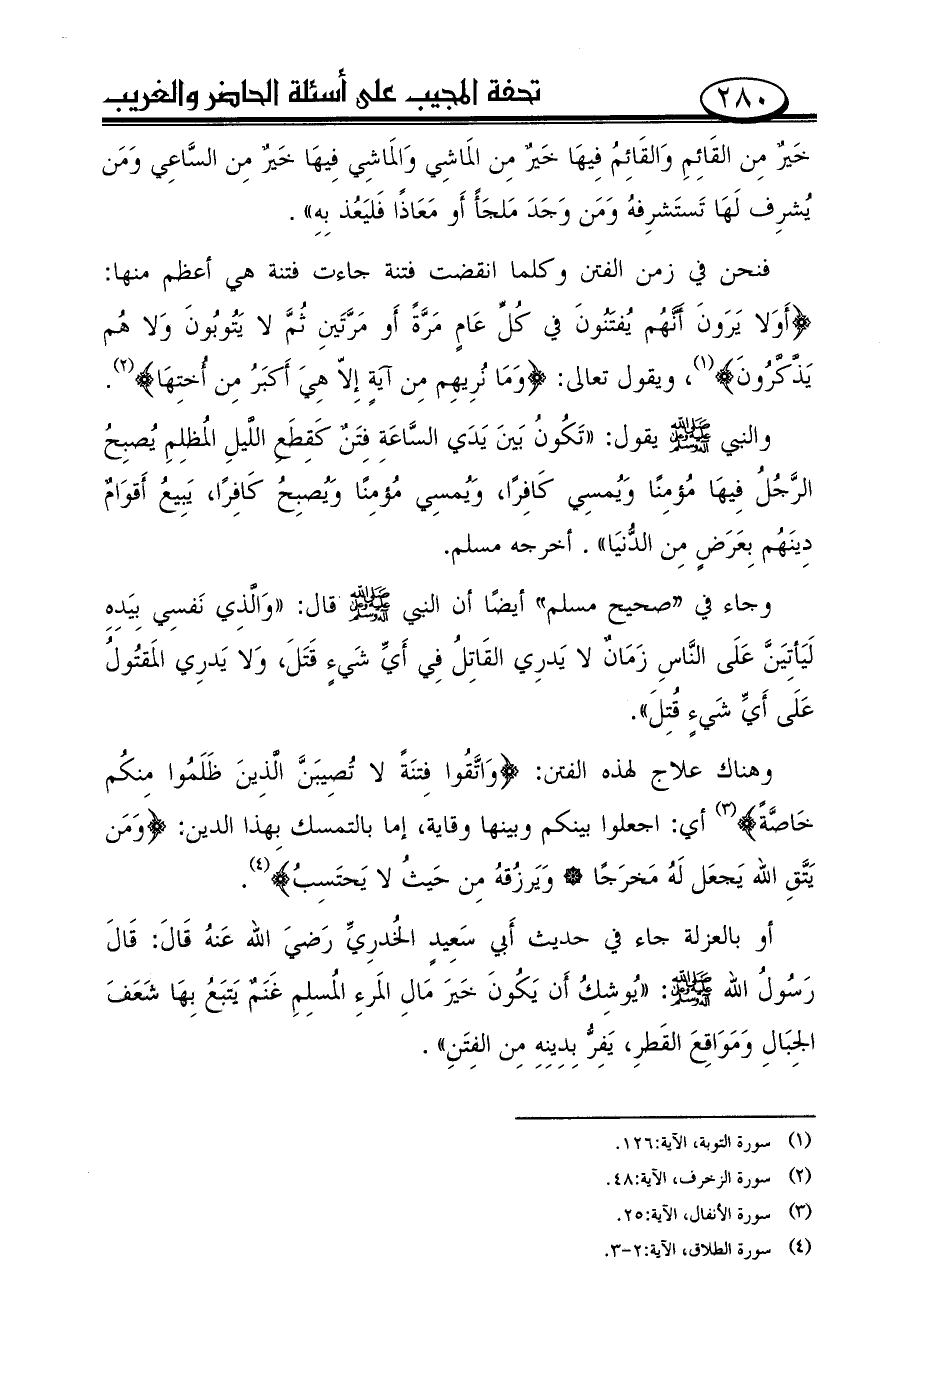 ٢٨٠
تحفة المجيب على أسئلة الحاضر والغريب
خَيرٌ مِن القَائِمِ وَالقَائِمُ فِيهَا خَيرٌ مِن المَاشِي وَالمَاشِي فِيهَا خَيرٌ مِن السَّاعِي وَمَن
يُشرِف لَهَا تَستَشرِفهُ وَمَن وَجَدَ مَلجَأً أَو مَعَاذًا فَليَعُذ بِهِ» .
فنحن في زمن الفتن وكلما انقضت فتنة جاءت فتنة هي أعظم منها:
﴿أَوَلا يَرَونَ أَنَّهُم يُفتَنُونَ في كُلِّ عَامٍ مَرَّةً أَو مَرَّتَينِ ثُمَّ لا يَتُوبُونَ وَلا هُم
يَذَّكَّرُونَ﴾(١)، ويقول تعالى: ﴿وَمَا نُرِيهِم مِن آيَةٍ إِلاَّ هِيَ أَكبَرُ مِن أُختِهَا﴾(٢).
والنبي ﷺ يقول: «تَكُونُ بَينَ يَدَي السَّاعَةِ فِتَنٌ كَقِطَعِ اللَّيلِ المُظلِمِ يُصبِحُ
الرَّجُلُ فِيهَا مُؤمِنًا وَيُمسِي كَافِرًا، وَيُمسِي مُؤمِنًا وَيُصبِحُ كَافِرًا، يَبِيعُ أَقوَامٌ
دِينَهُم بِعَرَضٍ مِن الدُّنيَا» . أخرجه مسلم.
وجاء في «صحيح مسلم» أيضًا أن النبي ﷺ قال: «وَالَّذِي نَفسِي بِيَدِهِ
لَيَأتِيَنَّ عَلَى النَّاسِ زَمَانٌ لا يَدرِي القَاتِلُ فِي أَيِّ شَيءٍ قَتَلَ، وَلا يَدرِي المَقتُولُ
عَلَى أَيِّ شَيءٍ قُتِلَ».
وهناك علاج لهذه الفتن: ﴿وَاتَّقُوا فِتنَةً لا تُصِيبَنَّ الَّذِينَ ظَلَمُوا مِنكُم
خَاصَّةً﴾(٣) أي: اجعلوا بينكم وبينها وقاية، إما بالتمسك بهذا الدين: ﴿وَمَن
يَتَّقِ اللهَ يَجعَل لَهُ مَخرَجًا ۞ وَيَرزُقهُ مِن حَيثُ لا يَحتَسِبُ﴾(٤).
أو بالعزلة جاء في حديث أَبي سَعِيدٍ الخُدريِّ رَضِيَ الله عَنهُ قَالَ: قَالَ
رَسُولُ الله ﷺ: «يُوشِكُ أَن يَكُونَ خَيرَ مَالِ المَرءِ المُسلِمِ غَنَمٌ يَتبَعُ بِهَا شَعَفَ
الجِبَالِ وَمَوَاقِعَ القَطرِ، يَفِرُّ بِدِينِهِ مِن الفِتَنِ» .
(١) سورة التوبة، الآية:١٢٦.
(٢) سورة الزخرف، الآية:٤٨.
(٣) سورة الأنفال، الآية:٢٥.
(٤) سورة الطلاق، الآية:٢-٣.